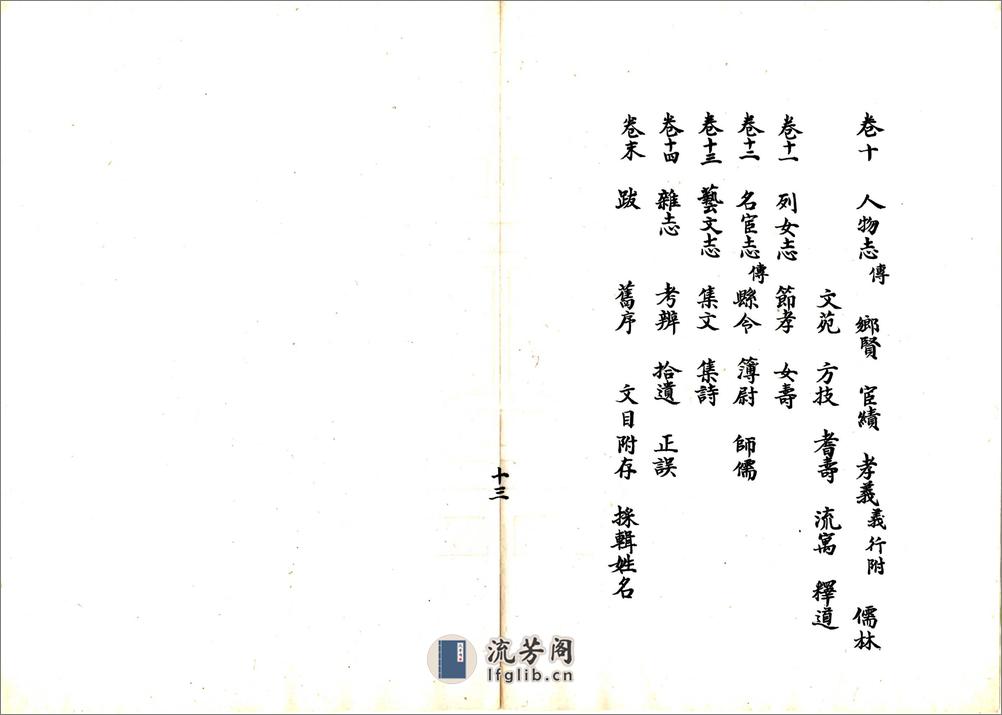 卷十 人物志傳 鄉賢 宦績 孝義義行附 儒林
文苑 方技 耆壽 流寓 釋道
卷十一 列女志 節孝 女壽
卷十二 名宦志傳 縣令 簿尉 師儒
卷十三 藝文志 集文 集詩
卷十四 雜志 考辨 拾遺 正誤
卷末 跋 舊序 文目附存 採輯姓名
十三
流芳阁
lfglib.cn